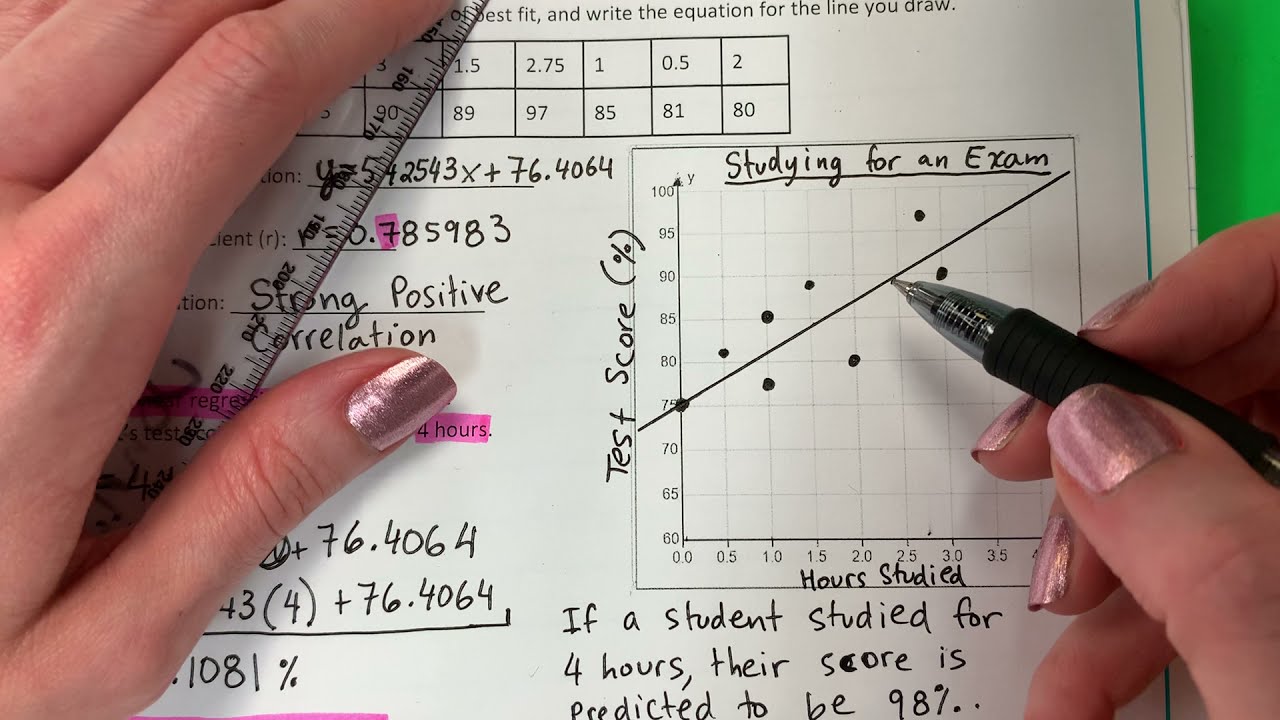 of best fit, and write the equation for the line you draw.
3 1.5 2.75 1 0.5 2
90 89 97 85 81 80
y=5.42543x+76.4064
(r): r=0.785983
Strong Positive
Correlation
4 hours.
+76.4064
43(4)+76.4064
.1081%
Studying for an Exam
y
100
95
90
85
80
75
70
65
60
0.0 0.5 1.0 1.5 2.0 2.5 3.0 3.5
Test Score (%)
Hours Studied
If a student studied for
4 hours, their score is
predicted to be 98%..
150
160
170
190
200
210
220
240